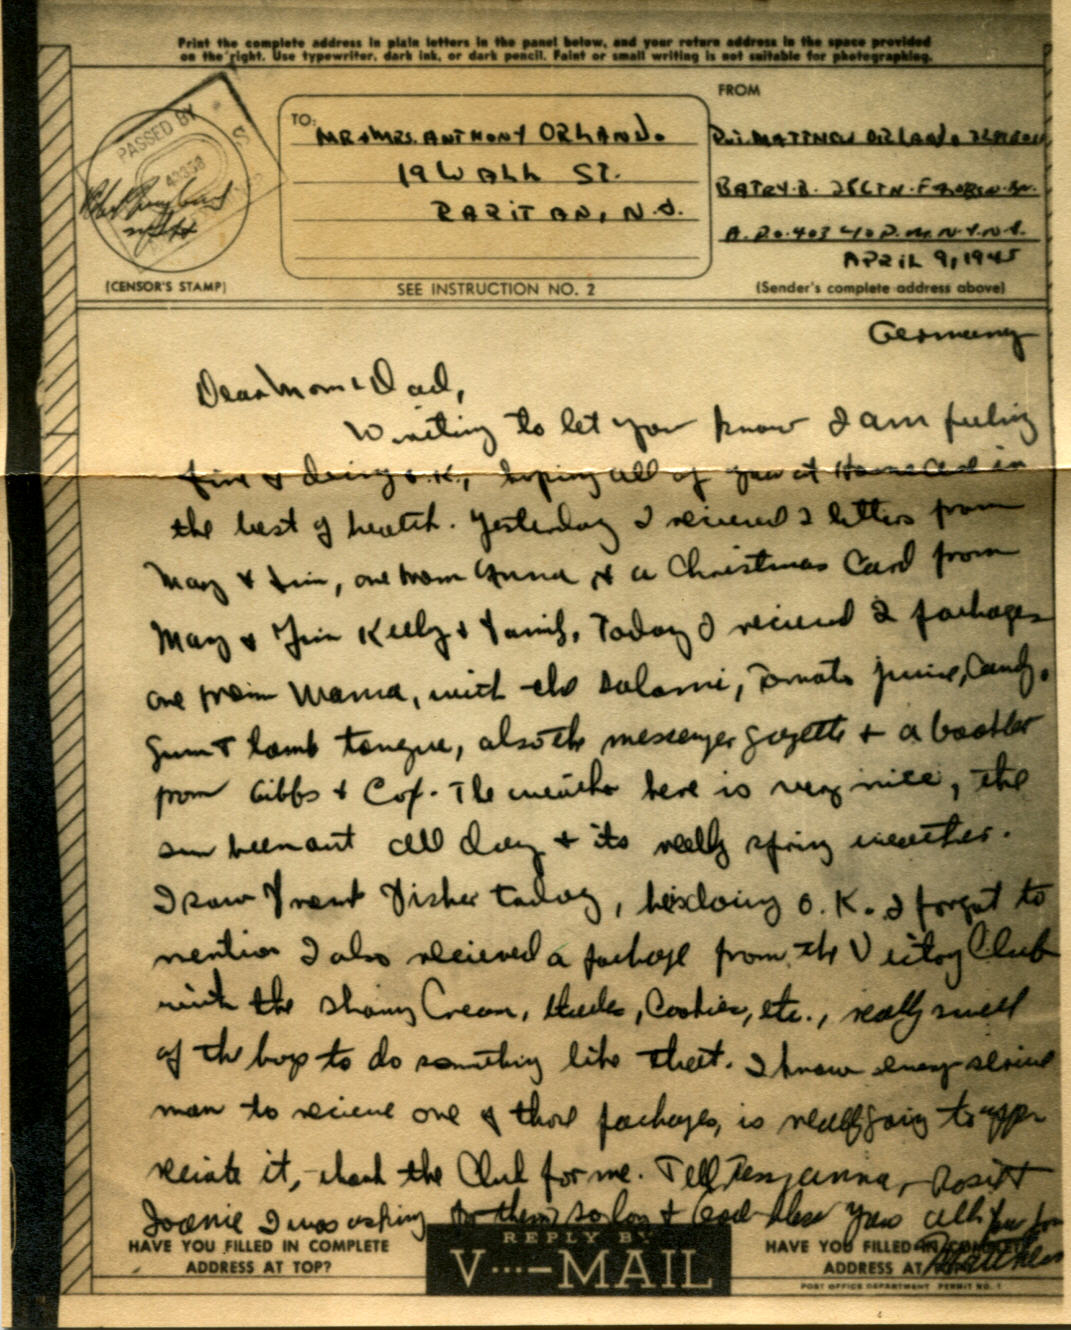 Print the complete address in plain letters in the panel below, and your return address in the space provided
on the right. Use typewriter, dark ink, or dark pencil. Faint or small writing is not suitable for photographing.
FROM
PASSED BY
43358
TO:
MR & MRS. ANTHONY ORLANDO.
19 WALL ST.
RARITAN, N.J.
Pvt. MATTHEW ORLANDO
BATRY. B.
A.P.O. 403 N.Y. N.Y.
APRIL 9, 1945
(CENSOR'S STAMP)
SEE INSTRUCTION NO. 2
(Sender's complete address above)
Germany
Dear Mom & Dad,
Writing to let you know I am feeling
fine & doing O.K., hoping all of you at Home are in
the best of health. Yesterday I recieved 2 letters from
May & Jim, one from Anna & a Christmas Card from
May & Jim Kelly & Family. Today I recieved 2 packages
one from Mama, with the salami, Tomato juice, Candy,
gum & lamb tongue, also the messenger gazette & a booklet
from Gibbs & Cox. The weather here is very nice, the
sun been out all day & its really spring weather.
I saw Frank Fisher today, he's doing O.K. I forgot to
mention I also recieved a package from the Victory Club
with the shaving Cream, blades, Cookies, etc., really swell
of the boys to do something like that. I know every service
man to recieve one of those packages, is really going to app-
reciate it, thank the Club for me. Tell Tess, Anna, Rosie &
Joanie I was asking for them, so long & God bless you all
Matthew
HAVE YOU FILLED IN COMPLETE
ADDRESS AT TOP?
REPLY BY
V···—MAIL
HAVE YOU FILLED IN COMPLETE
ADDRESS AT TOP?
POST OFFICE DEPARTMENT PERMIT NO. 1